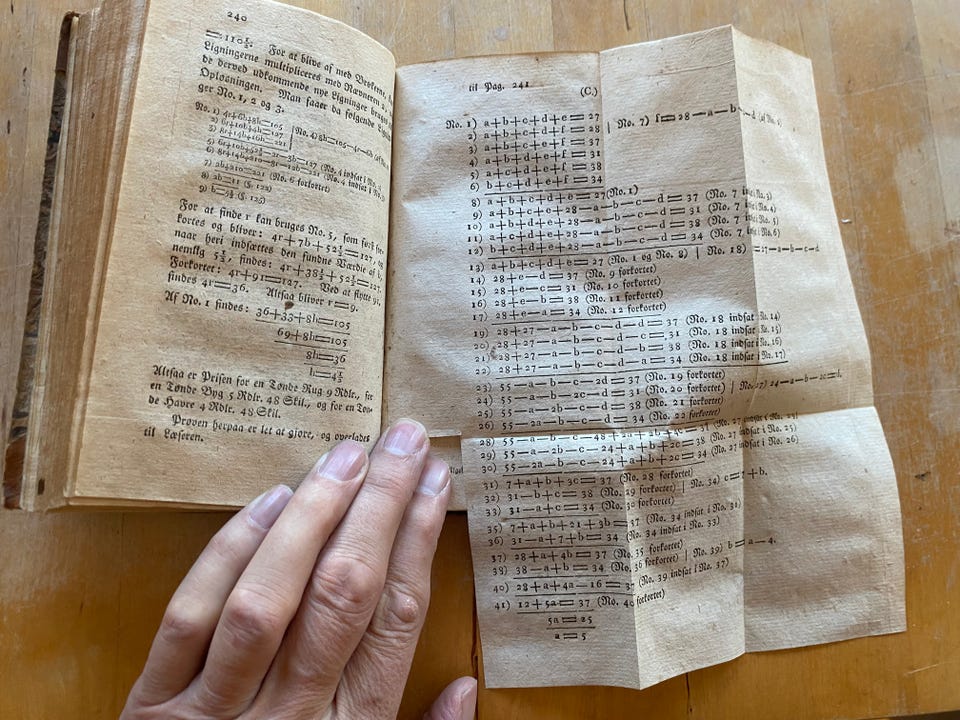 240
=:110
For at blive af med Brøkerne,
Ligningerne multipliceres med Nævneren 2,
de derved udkommende nye Ligninger bruges
Opløsningen. Man faaer da følgende
ger No. 1, 2 og 3.
No. 1) 4r+6b+8h=105
7) 2b+210=221 (No. 6 forkortet)
8) 2b=11 (§. 122)
For at finde r kan bruges No. 5, som først
kortes og bliver: 4r+7b+52½=127, og
naar heri indsættes den fundne Værdie af b,
nemlig 5½, findes: 4r+38½+52½=127.
Forkortet: 4r+91=127. Ved at flytte 91,
findes 4r=36. Altsaa bliver r=9.
Af No. 1 findes: 36+33+8h=105
69+8h=105
8h=36
h=4½
Altsaa er Prisen for en Tønde Rug 9 Rdlr., for
en Tønde Byg 5 Rdlr. 48 Skil., og for en Tøn-
de Havre 4 Rdlr. 48 Skil.
Prøven herpaa er let at gjøre, og overlades
til Læseren.
til Pag. 241
(C.)
No. 1) a+b+c+d+e=27
2) a+b+c+d+f=28 | No. 7) f=28—a—b
3) a+b+c+e+f=37
4) a+b+d+e+f=31
5) a+c+d+e+f=38
6) b+c+d+e+f=34
8) a+b+c+d+e=27 (No. 1)
9) a+b+c+e+28—a—b—c—d=37 (No. 7 indsat i No. 3)
10) a+b+d+e+28—a—b—c—d=31 (No. 7 indsat i No. 4)
11) a+c+d+e+28—a—b—c—d=38 (No. 7 indsat i No. 5)
12) b+c+d+e+28—a—b—c—d=34 (No. 7 indsat i No. 6)
13) a+b+c+d+e=27 (No. 1 og No. 8) | No. 18) e=27—a—b—c—d
14) 28+e—d=37 (No. 9 forkortet)
15) 28+e—c=31 (No. 10 forkortet)
16) 28+e—b=38 (No. 11 forkortet)
17) 28+e—a=34 (No. 12 forkortet)
19) 28+27—a—b—c—d—d=37 (No. 18 indsat i No. 14)
20) 28+27—a—b—c—d—c=31 (No. 18 indsat i No. 15)
21) 28+27—a—b—c—d—b=38 (No. 18 indsat i No. 16)
22) 28+27—a—b—c—d—a=34 (No. 18 indsat i No. 17)
23) 55—a—b—c—2d=37 (No. 19 forkortet)
24) 55—a—b—2c—d=31 (No. 20 forkortet) | No. 27) 24—a—b—2c=d.
25) 55—a—2b—c—d=38 (No. 21 forkortet)
26) 55—2a—b—c—d=34 (No. 22 forkortet)
28) 55—a—b—c—48+2a+2b+4c=37 (No. 27 indsat i No. 23)
29) 55—a—2b—c—24+a+b+2c=38 (No. 27 indsat i No. 25)
30) 55—2a—b—c—24+a+b+2c=34 (No. 27 indsat i No. 26)
31) 7+a+b+3c=37 (No. 28 forkortet)
32) 31—b+c=38 (No. 29 forkortet) | No. 34) c=7+b.
33) 31—a+c=34 (No. 30 forkortet)
35) 7+a+b+21+3b=37 (No. 34 indsat i No. 31)
36) 31—a+7+b=34 (No. 34 indsat i No. 33)
37) 28+a+4b=37 (No. 35 forkortet)
38) 38—a+b=34 (No. 36 forkortet) | No. 39) b=a—4.
40) 28+a+4a—16=37 (No. 39 indsat i No. 37)
41) 12+5a=37 (No. 40 forkortet)
5a=25
a=5